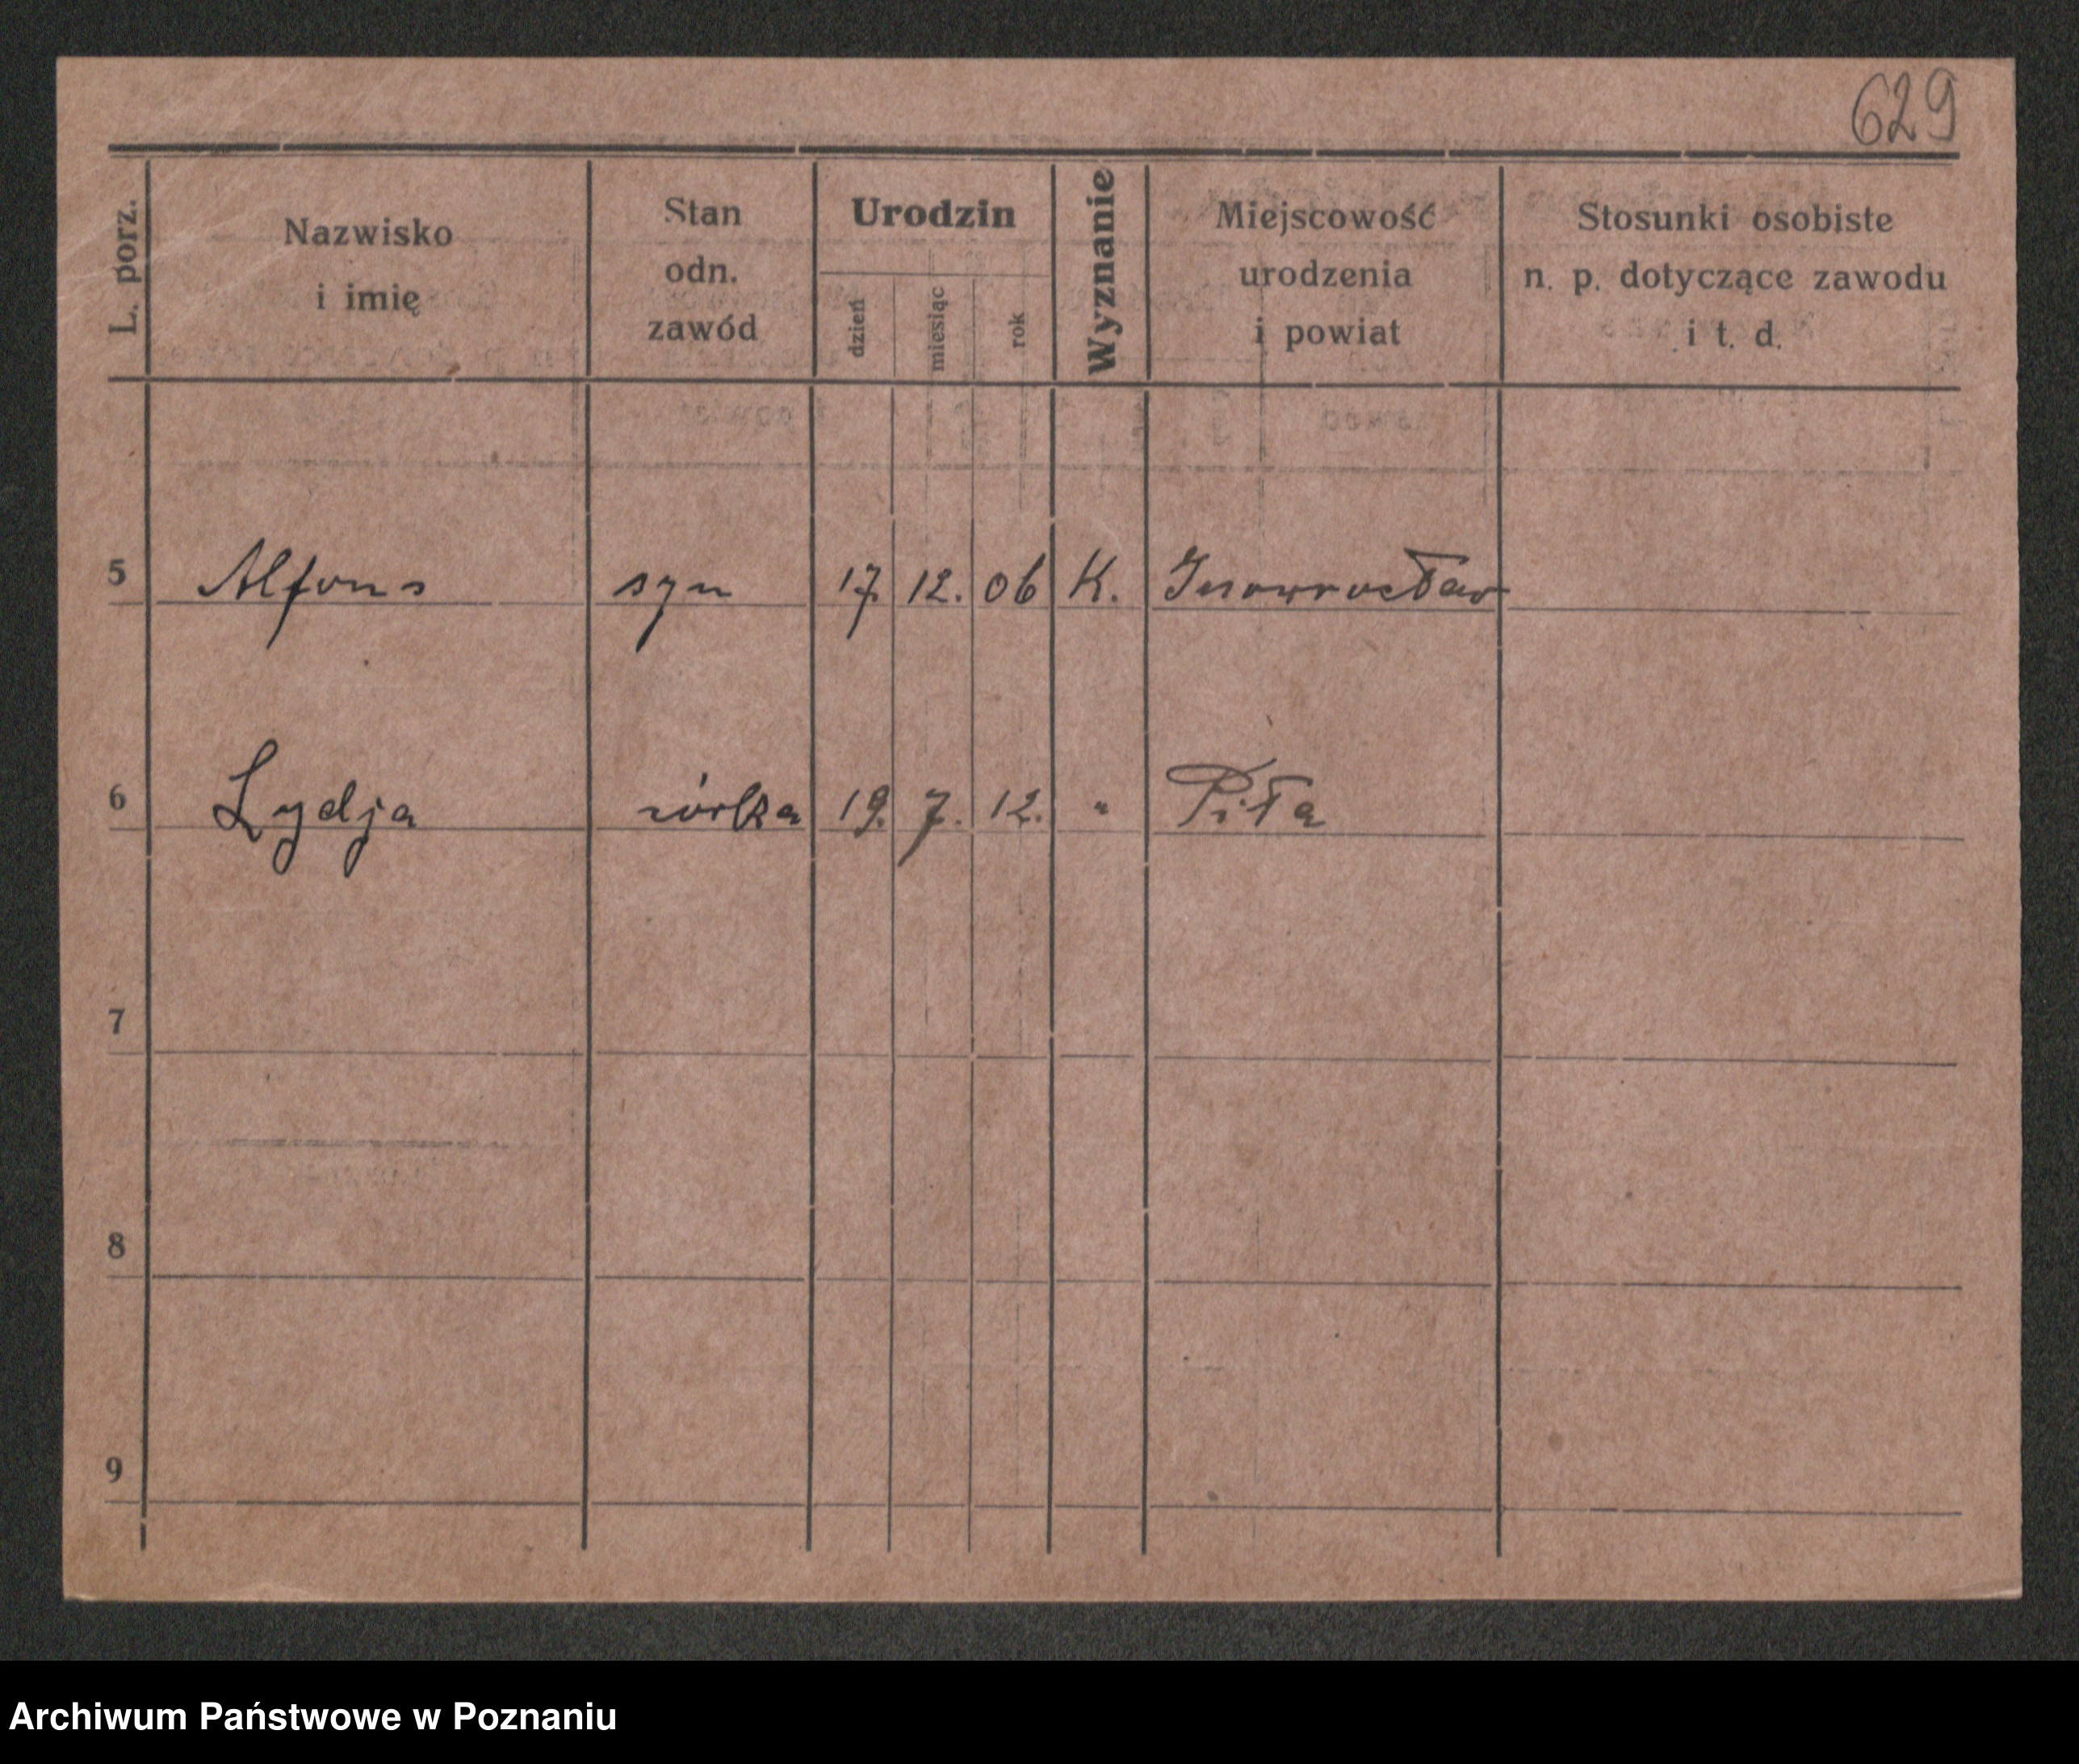 629
L. porz.
Nazwisko
i imię
Stan
odn.
zawód
Urodzin
dzień
miesiąc
rok
Wyznanie
Miejscowość
urodzenia
i powiat
Stosunki osobiste
n. p. dotyczące zawodu
i t. d.
5 Alfons syn 17. 12. 06 K. Inowrocław
6 Lydja córka 19. 7. 12. " Piła
7
8
9
Archiwum Państwowe w Poznaniu